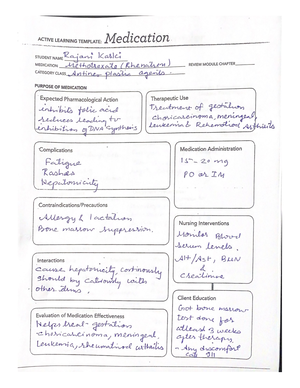 ACTIVE LEARNING TEMPLATE: Medication
STUDENT NAME Rajani Karki
MEDICATION Methotrexate (Rheumatrex) REVIEW MODULE CHAPTER
CATEGORY CLASS Antineoplastic agents
PURPOSE OF MEDICATION
Expected Pharmacological Action
inhibits folic acid
reduces leading to
inhibition of DNA Synthesis
Therapeutic Use
Treatment of gestation
Choricarcinoma, meningeal,
leukemia & Rehumatiod Arthritis
Complications
Fatigue
Rashes
Hepatoxicity
Medication Administration
15 - 20 mg
PO or IM
Contraindications/Precautions
Allergy & lactation
Bone marrow suppression.
Nursing Interventions
Monitor Blood
Serum levels,
Alt/Ast, BUN
&
Creatinine
Interactions
Cause hepatoxicity, continously
should by cautiously with
other items.
Client Education
Get bone marrow
test done for
atleast 3 weeks
after therapy
- Any discomfort
call
Evaluation of Medication Effectiveness
Helps treat - gestation
Choricarcinoma, meningeal,
Leukemia, rheumatiod arthritis